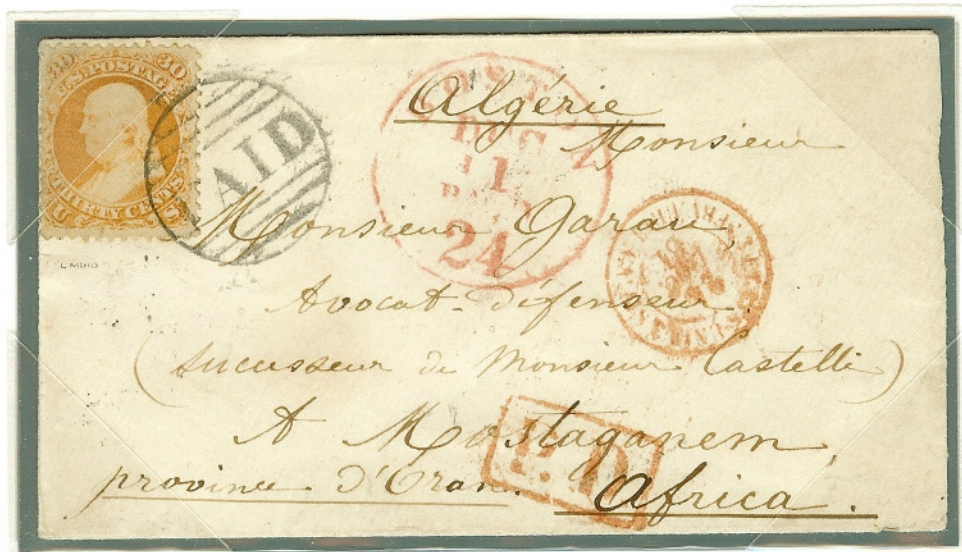 30 30
U.S. POSTAGE
THIRTY CENTS
U S
PAID
BOSTON
DEC
11
PAID
24
L. MIRO
Algérie
Monsieur
Monsieur Garau,
Avocat-défenseur
(successeur de Monsieur Castelli)
A Mostaganem,
province d'Oran. Africa.
P.D.